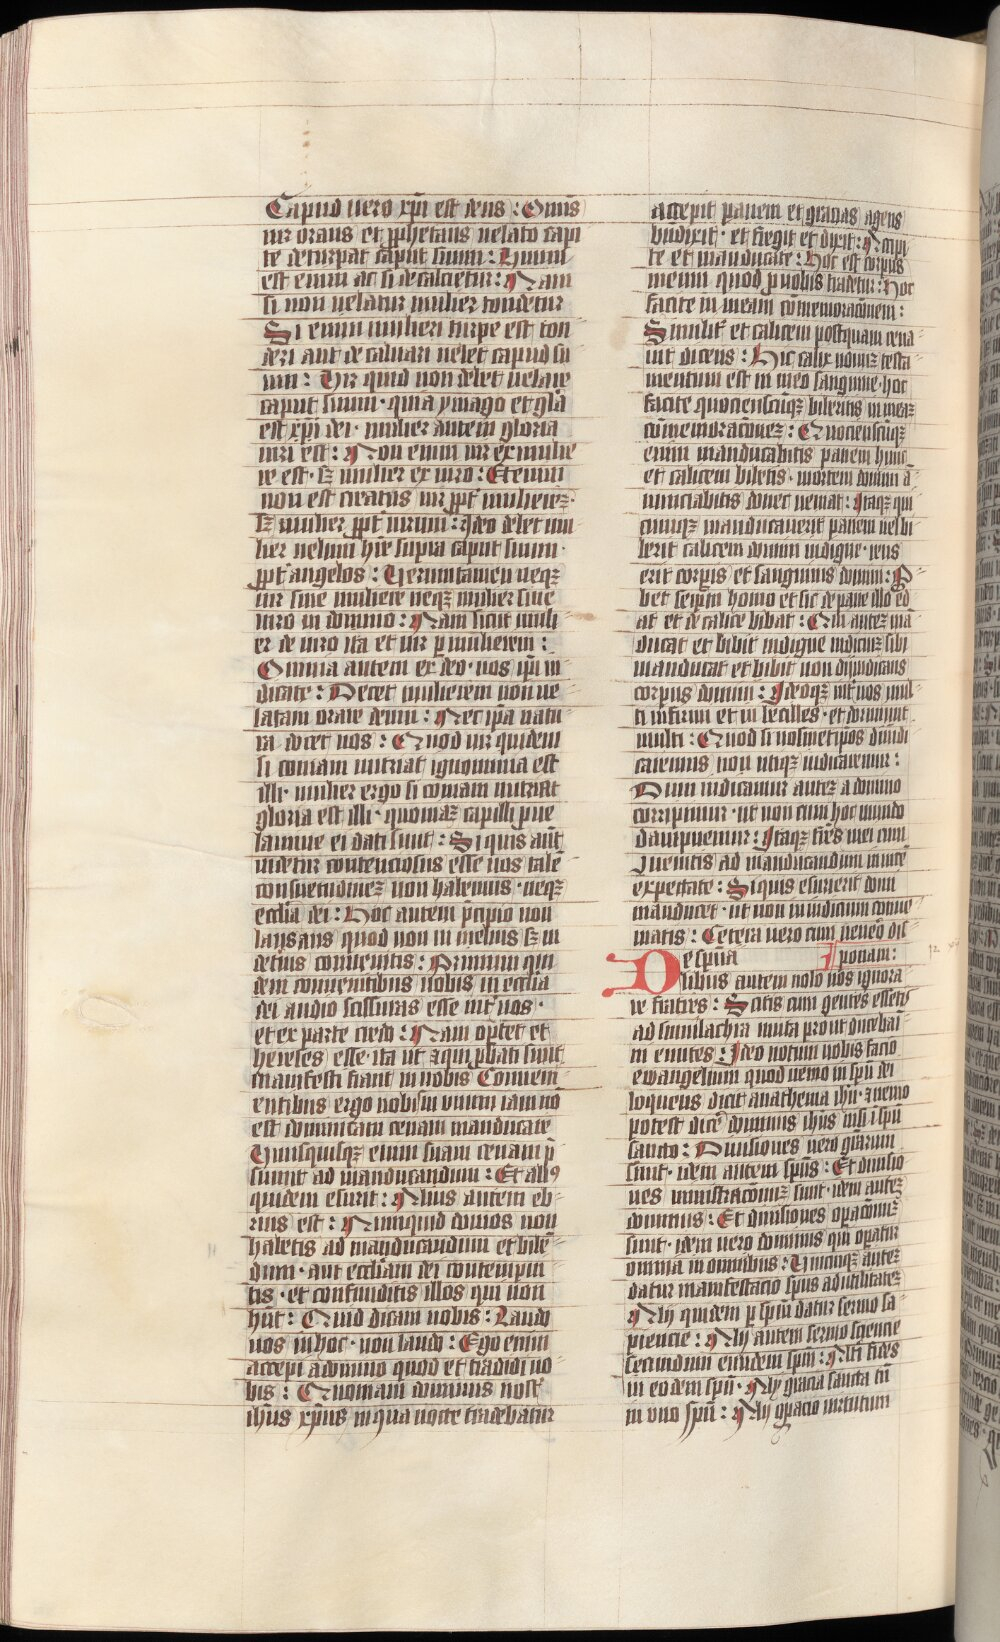 Capud uero xp̄i est deus : Omīs
uir orans et ꝓphetans uelato capi
te deturpat caput suum : Unum
est enim ac si decalcietur : Nam
si non uelatur mulier tondetur
Si enim mulieri turpe est ton
deri aut decaluari uelet capud su
um : Vir quid non debet uelare
caput suum · quia ymago et gl̄a
est xp̄i dei · mulier autem gloria
uiri est : Non enim uir ex mulie
re est · sꝫ mulier ex uiro : Etenim
non est creatus uir ꝓpt̄ mulierēꝫ ·
sꝫ mulier ꝓpt̄ uirum : ideo debet mu
lier uelum hr̄e supra caput suum ·
ꝓpt̄ angelos : Verumtamen neqꝫ
uir sine muliere neqꝫ mulier sine
uiro in domino : Nam sicut muli
er de uiro ita et uir ꝑ mulierem :
Omnia autem ex deo · uos ip̄i iu
dicate : Decet mulierem non ue
latam orare deum : Nec ip̄a natu
ra docet uos : Quod uir quidem
si comam nutriat ignominia est
illi · mulier ergo si comam nutriat
gloria est illi · quoniaꝫ capilli pue
lamine ei dati sunt : Si quis aūt
uidetur contenciosus esse nos talē
consuetudineꝫ non habemus · neqꝫ
eccl̄ia dei : Hoc autem p̄cipio non
laudans quod non in melius sꝫ in
deterius conuenitis : Primum qui
dem conuenientibus uobis in eccl̄ia
dei audio scissuras esse int̄ uos ·
et ex parte credo : Nam op̄tet et
hereses esse · ita ut ⁊ qui ꝓbati sunt
manifesti fiant in uobis Conueni
entibus ergo uobis in unum iam nō
est dominicam cenam manducare
Vnusquisqꝫ enim suam cenam p̄
sumit ad manducandum : Et aliꝰ
quidem esurit : Alius autem eb
rius est : Numquid domos non
habetis ad manducandum et bibē
dum · aut eccl̄iam dei contempni
tis · et confunditis illos qui non
hn̄t : Quid dicam uobis : Laudo
uos in hoc · non laudo : Ego enim
accepi a domino quod et tradidi uo
bis : Quoniam dominus nost̄
ih̄us xp̄us in qua nocte tradebatur
accepit panem et gracias agens
bn̄dixit · et fregit et dixit : Accipi
te et manducate : Hoc est corpus
meum quod ꝓ uobis tradetur : Hoc
facite in meam cōmemoracōnem :
Similit̄ et calicem postquam cena
uit dicens : Hic calix nouuꝫ testa
mentum est in meo sanguine · hoc
facite quocienscūqꝫ biberitis in meaꝫ
cōmemoracōneꝫ : Quocienscūqꝫ
enim manducabitis panem hunc
et calicem bibetis · mortem domini ā
nunciabitis donec ueniat : Itaqꝫ qui
cumqꝫ manducauerit panem uel bi
berit calicem domini indigne · reus
erit corpis et sanguinis domini : Pro
bet seip̄m homo et sic de pane illo ed
at et de calice bibat : Qui auteꝫ mā
ducat et bibit indigne iudiciuꝫ sibi
manducat et bibit non diiudicans
corpus domini : Ideoqꝫ int̄ uos mul
ti infirmi et in becilles · et dormiunt
multi : Quod si nosmetip̄os diiudi
caremus non utiqꝫ iudicaremur :
Dum iudicamur auteꝫ a domino
corripimur · ut non cum hoc mundo
dampnemur : Itaqꝫ fr̄es mei cum
ꝯuenitis ad manducandum inuicē
expectate : Si quis esurierit domi
manducet · ut non in iudicium conue
niatis : Cetera uero cum uenero dis
De sp̄ua ponam :
libus autem nolo uos ignora
re fratres : Scitis cum gentes essetis
ad simulachra muta prout ducebaī
ni euntes : Ideo notum uobis facio
ewangelium quod nemo in sp̄u dei
loquens dicit anathema ih̄u · ⁊ nemo
potest dicē dominus ih̄us nisi ī sp̄u
sancto : Diuisiones uero gr̄arum
sunt · idem autem sp̄us : Et diuisio
nes ministracōnuꝫ sunt · idem auteꝫ
dominus : Et diuisiones op̄acōnuꝫ
sunt · idem uero dominus qui op̄atur
omnia in omnibus : Vnicuiqꝫ auteꝫ
datur manifestacio sp̄us ad utilitateꝫ
Alij quidem ꝑ sp̄m datur sermo sa
piencie : Alij autem sermo sciencie
secundum eundem sp̄m : Alteri fides
in eodem sp̄u · Alij gracia sanita tū
in uno sp̄u : Alij op̄acio uirtutum